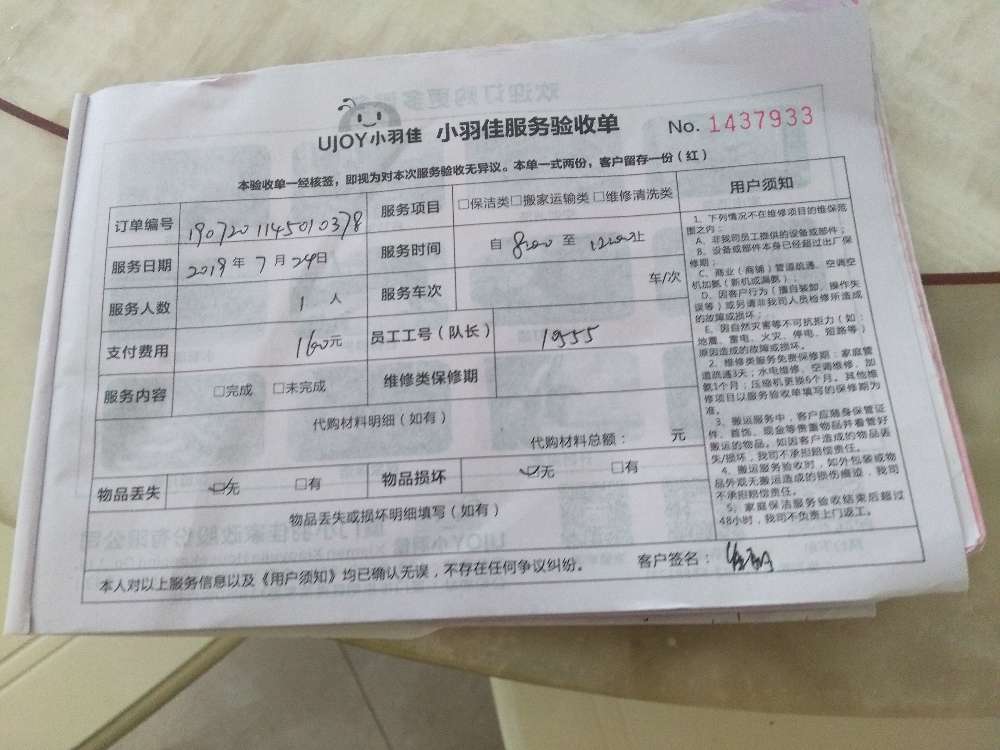 UJOY小羽佳 小羽佳服务验收单 No. 1437933
本验收单一经核签，即视为对本次服务验收无异议。本单一式两份，客户留存一份（红）
订单编号 190720114501 0378 服务项目 □保洁类□搬家运输类□维修清洗类
服务日期 2019年7月24日 服务时间 自 8:00 至 12:00止
服务人数 1 人 服务车次 车/次
支付费用 160元 员工工号（队长） 1955
服务内容 □完成 □未完成 维修类保修期
代购材料明细（如有）
代购材料总额： 元
物品丢失 ☑无 □有 物品损坏 ☑无 □有
物品丢失或损坏明细填写（如有）
本人对以上服务信息以及《用户须知》均已确认无误，不存在任何争议纠纷。 客户签名：
用户须知
1、下列情况不在维修项目的维保范
围之内：
A、非我司员工提供的设备或部件；
B、设备或部件本身已经超过出厂保
修期；
C、商业（商铺）管道疏通、空调空
机加氨（新机或漏氨）；
D、因客户行为（擅自装卸、操作失
误等）或另请非我司人员检修所造成
的故障或损坏；
E、因自然灾害等不可抗拒力（如：
地震、雷电、火灾、停电、短路等）
原因造成的故障或损坏。
2、维修类服务免费保修期：家庭管
道疏通3天；水电维修、空调维修、加
氨1个月；压缩机更换6个月。其他维
修项目以服务验收单填写的保修期为
准。
3、搬运服务中，客户应随身保管证
件、首饰、现金等贵重物品并看管好
搬运的物品。如因客户造成的物品丢
失/损坏，我司不承担赔偿责任。
4、搬运服务验收时，如外包装或物
品外观无搬运造成的损伤痕迹，我司
不承担赔偿责任。
5、家庭保洁服务验收结束后超过
48小时，我司不负责上门返工。